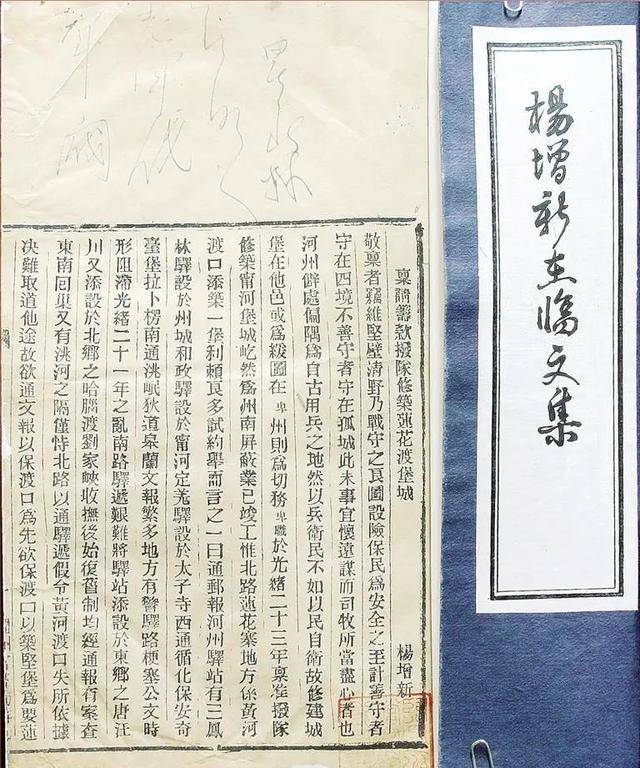 楊增新在臨文集
稟請籌款撥隊修築蓮花渡堡城 楊增新
敬稟者竊維堅壁清野乃戰守之良圖設險保民爲安全之至計善守者
守在四境不善守者守在孤城此未事宜懷遠謀而司牧所當盡心者也
河州僻處偏隅爲自古用兵之地然以兵衛民不如以民自衛故修建城
堡在他邑或爲緩圖在卑州則爲切務卑職於光緒二十三年稟准撥隊
修築甯河堡城屹然爲州南屏蔽業已竣工惟北路蓮花寨地方係黃河
渡口添築一堡利賴良多試約舉而言之一曰通郵報河州驛站有三鳳
林驛設於州城和政驛設於甯河定羌驛設於太子寺西通循化保安奇
臺堡拉卜楞南通洮岷狄道皋蘭文報繁多地方有警驛路梗塞公文時
形阻滯光緒二十一年之亂南路驛遞艱難將驛站添設於東鄉之唐汪
川又添設於北鄉之哈腦渡劉家峽收撫後始復舊制均經通報有案查
東南囘巢又有洮河之隔僅恃北路以通驛遞假令黃河渡口失所依據
决難取道他途故欲通文報以保渡口爲先欲保渡口以築堅堡爲要蓮